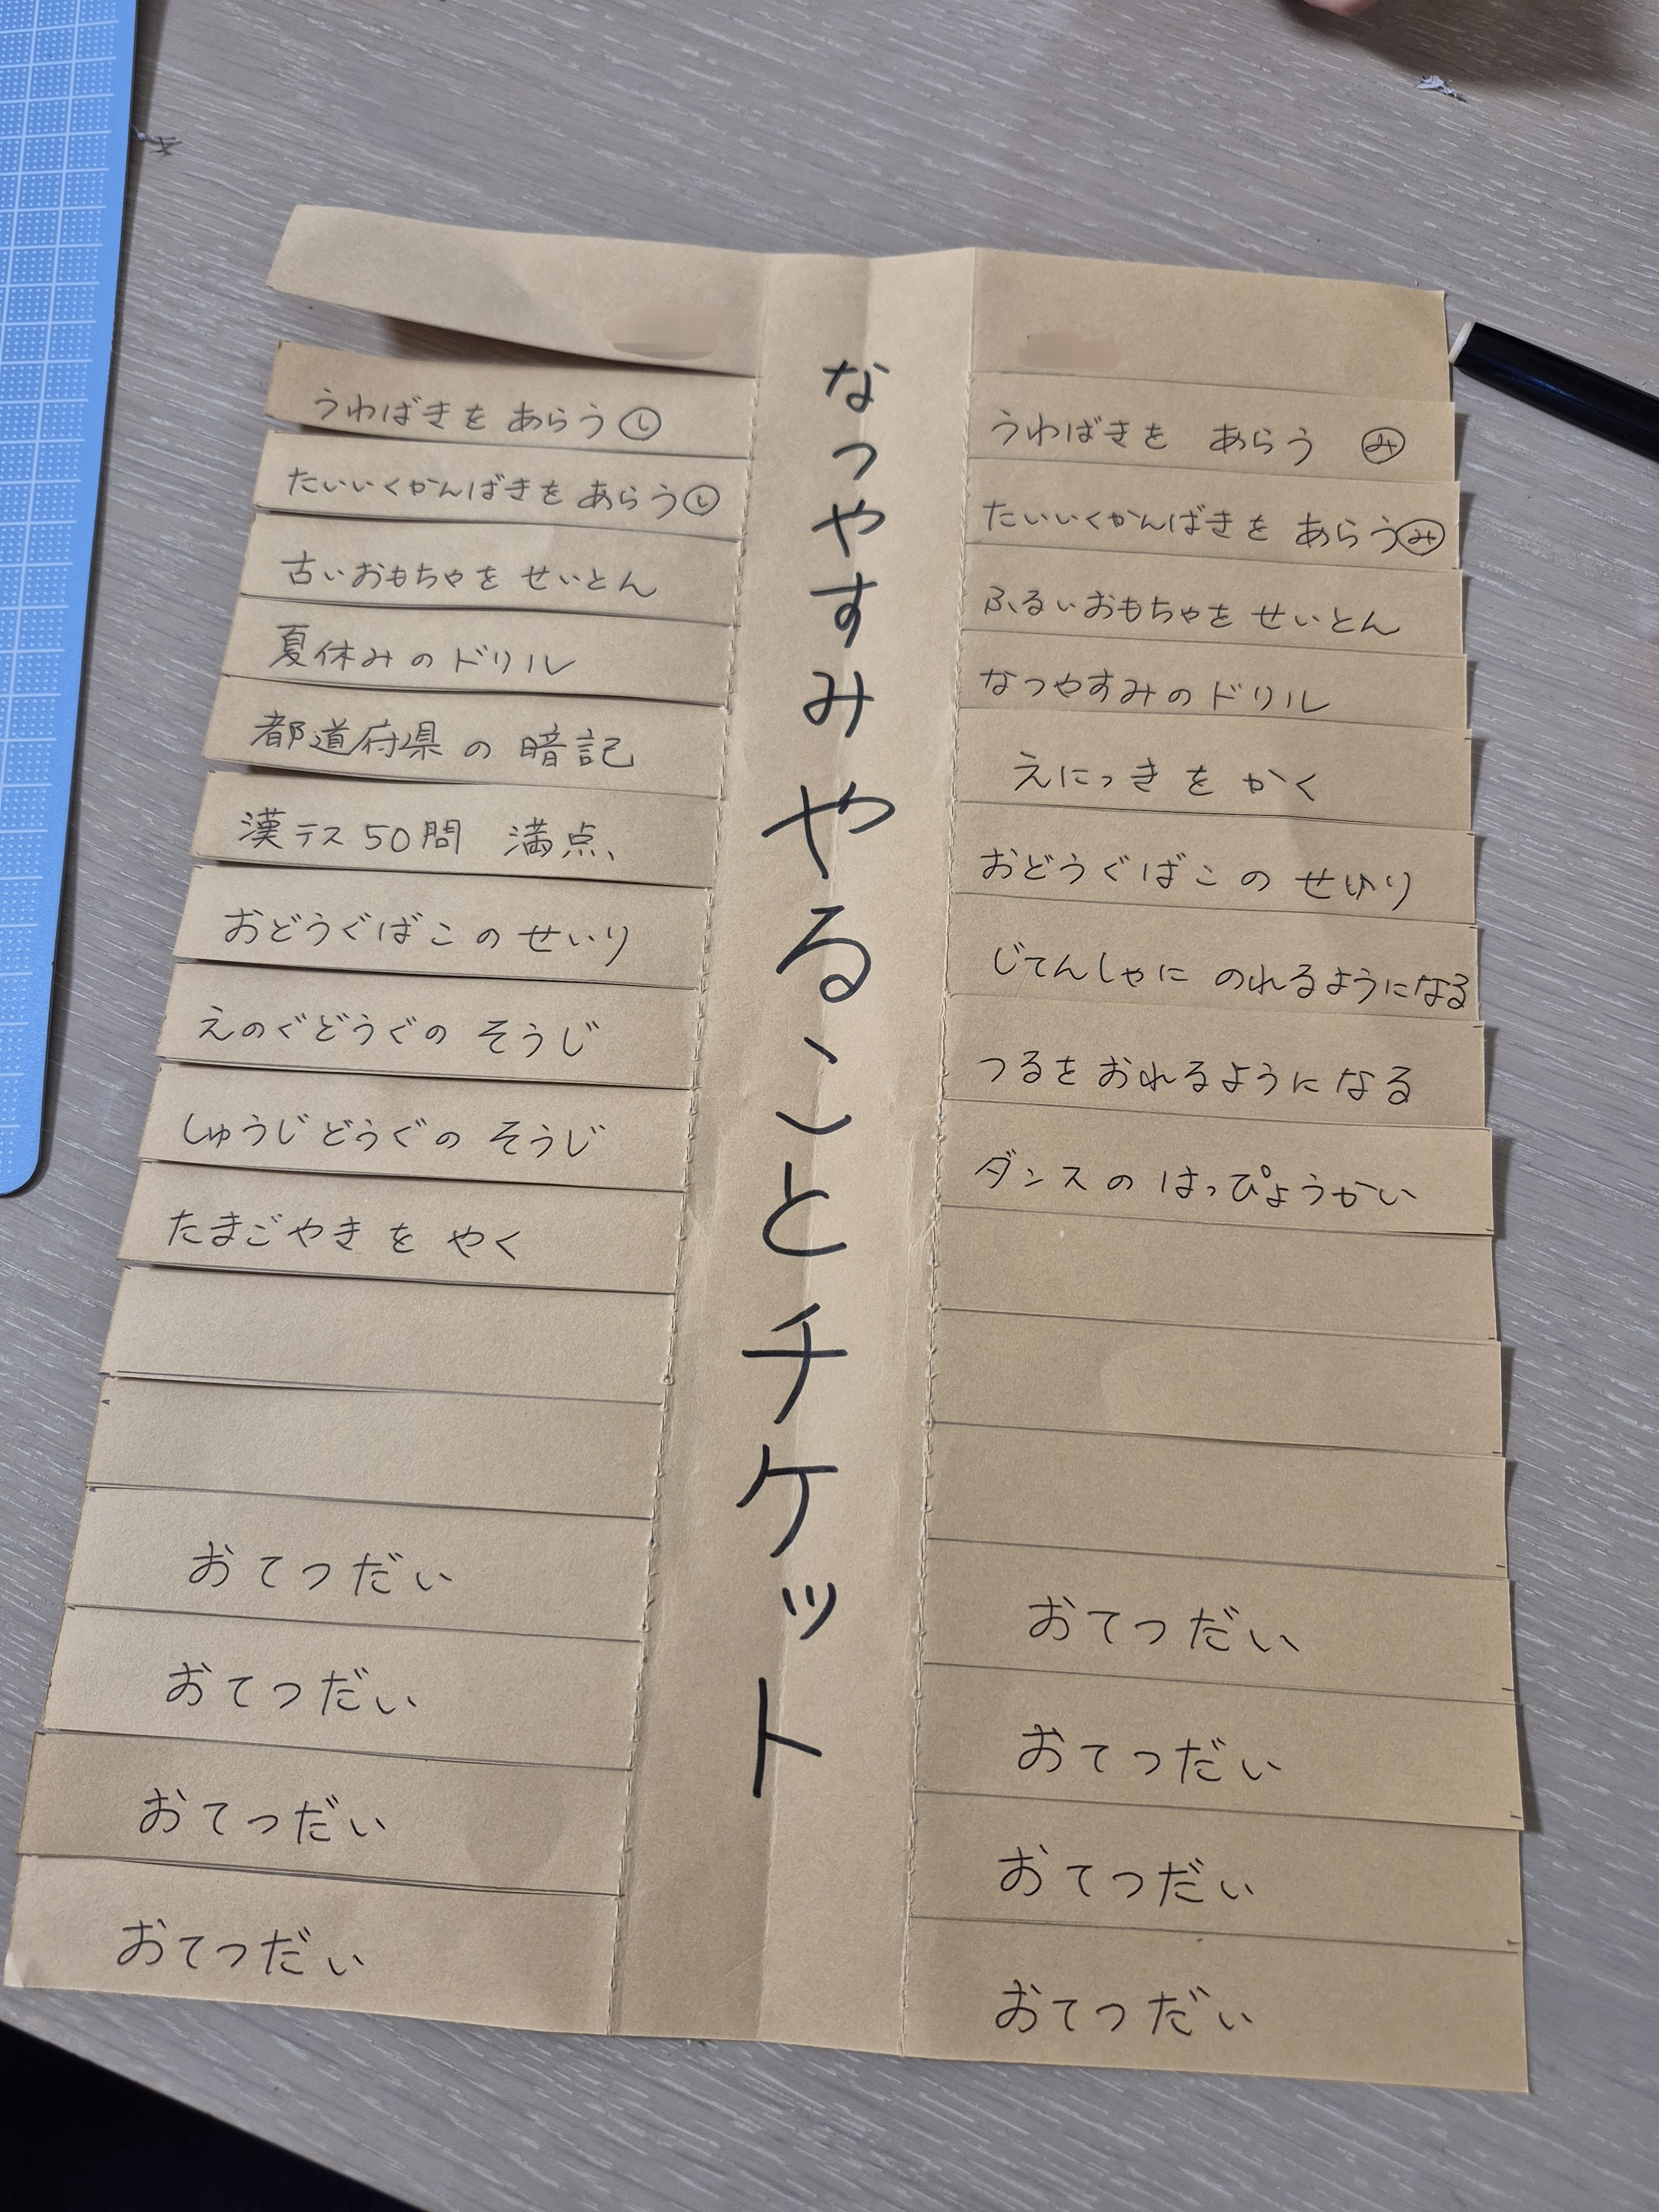 なつやすみ やることチケット
うわばきを あらう し
たいいくかんばきを あらう し
古いおもちゃを せいとん
夏休みのドリル
都道府県の 暗記
漢テス50問 満点、
おどうぐばこの せいり
えのぐどうぐの そうじ
しゅうじどうぐの そうじ
たまごやきを やく
おてつだい
おてつだい
おてつだい
おてつだい
うわばきを あらう み
たいいくかんばきを あらう み
ふるいおもちゃを せいとん
なつやすみのドリル
えにっきを かく
おどうぐばこの せいり
じてんしゃに のれるようになる
つるを おれるように なる
ダンスの はっぴょうかい
おてつだい
おてつだい
おてつだい
おてつだい